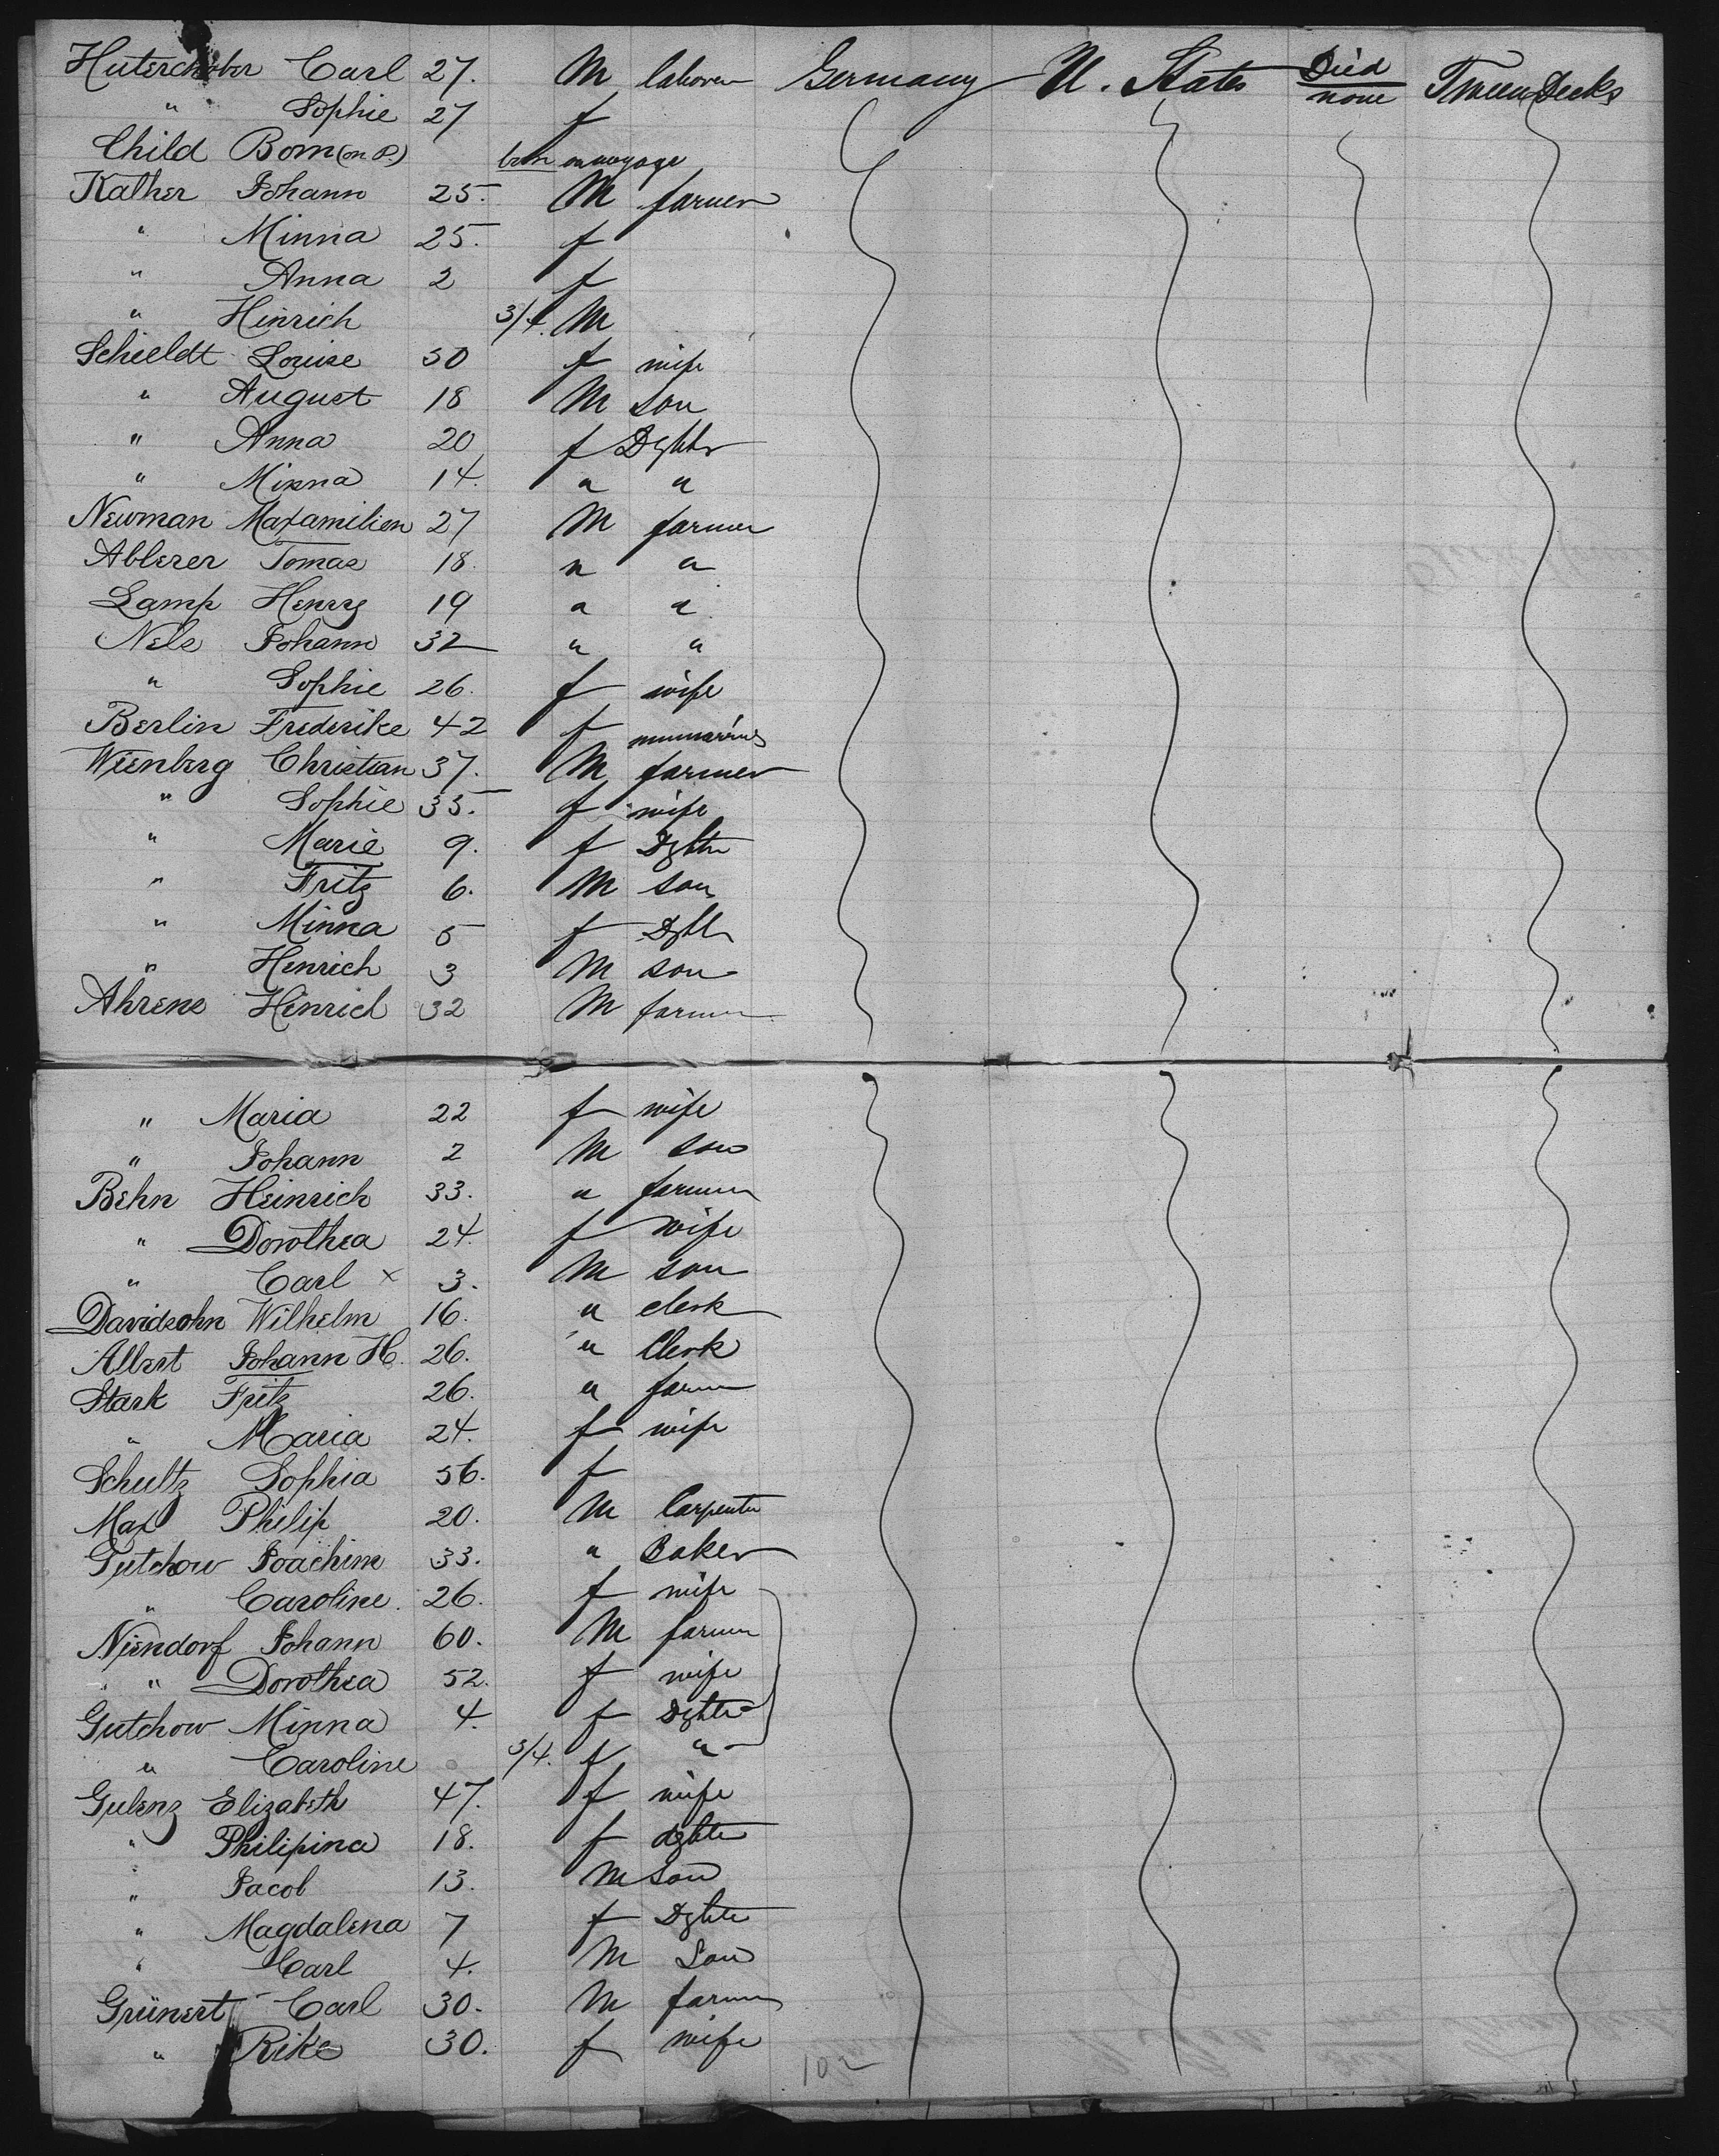 Huterchober Carl 27. M laborer Germany U. States Died none Tween Decks
" Sophie 27 f
Child Born (on P.) born on voyage
Kather Johann 25. M farmer
" Minna 25. f
" Anna 2 f
" Hinrich 3/4. M
Schieldt Louise 50 f wife
" August 18 M son
" Anna 20 f Dghtr
" Minna 14. " "
Newman Maxamilien 27 M farmer
Ablerer Tomas 18. " "
Lamp Henry 19 " "
Nels Johann 32 " "
" Sophie 26. f wife
Berlin Frederike 42 f
Wienberg Christian 37. M farmer
" Sophie 35. f wife
" Marie 9. f Dghtr
" Fritz 6. M son
" Minna 5 f Dghtr
" Henrich 3 M son
Ahrens Hinrich 32 M farmer
" Maria 22 f wife
" Johann 2 M son
Behn Heinrich 33. " farmer
" Dorothea 24. f wife
" Carl x 3. M son
Davidsohn Wilhelm 16. " clerk
Albert Johann H. 26. " Clerk
Stark Fritz 26. " farmer
" Maria 24. f wife
Schultz Sophia 56. f
Max Philip 20. M Carpenter
Gutchow Joachim 33. " Baker
" Caroline. 26. f wife
Niendorf Johann 60. M farmer
" Dorothea 52. f wife
Gutchow Minna 4. f Dghter
" Caroline 3/4. f "
Gulenz Elizabeth 47. f wife
" Philipina 18. f dghter
" Jacob 13. M Son
" Magdalena 7 f Dghter
" Carl 4. M Son
Grünert Carl 30. M farmer
" Rike 30. f wife
102